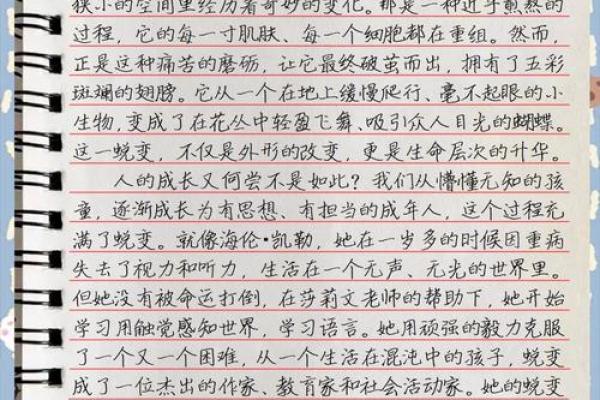 狭小的空间里经历着奇妙的变化。那是一种近乎煎熬的
过程，它的每一寸肌肤、每一个细胞都在重组。然而，
正是这种痛苦的磨砺，让它最终破茧而出，拥有了五彩
斑斓的翅膀。它从一个在地上缓慢爬行、毫不起眼的小
生物，变成了在花丛中轻盈飞舞、吸引众人目光的蝴蝶。
这一蜕变，不仅是外形的改变，更是生命层次的升华。
人的成长又何尝不是如此？我们从懵懂无知的孩
童，逐渐成长为有思想、有担当的成年人，这个过程充
满了蜕变。就像海伦·凯勒，她在一岁多的时候因重病
失去了视力和听力，生活在一个无声、无光的世界里。
但她没有被命运打倒，在莎莉文老师的帮助下，她开始
学习用触觉感知世界，学习语言。她用顽强的毅力克服
了一个又一个困难，从一个生活在混沌中的孩子，蜕变
成了一位杰出的作家、教育家和社会活动家。她的蜕变